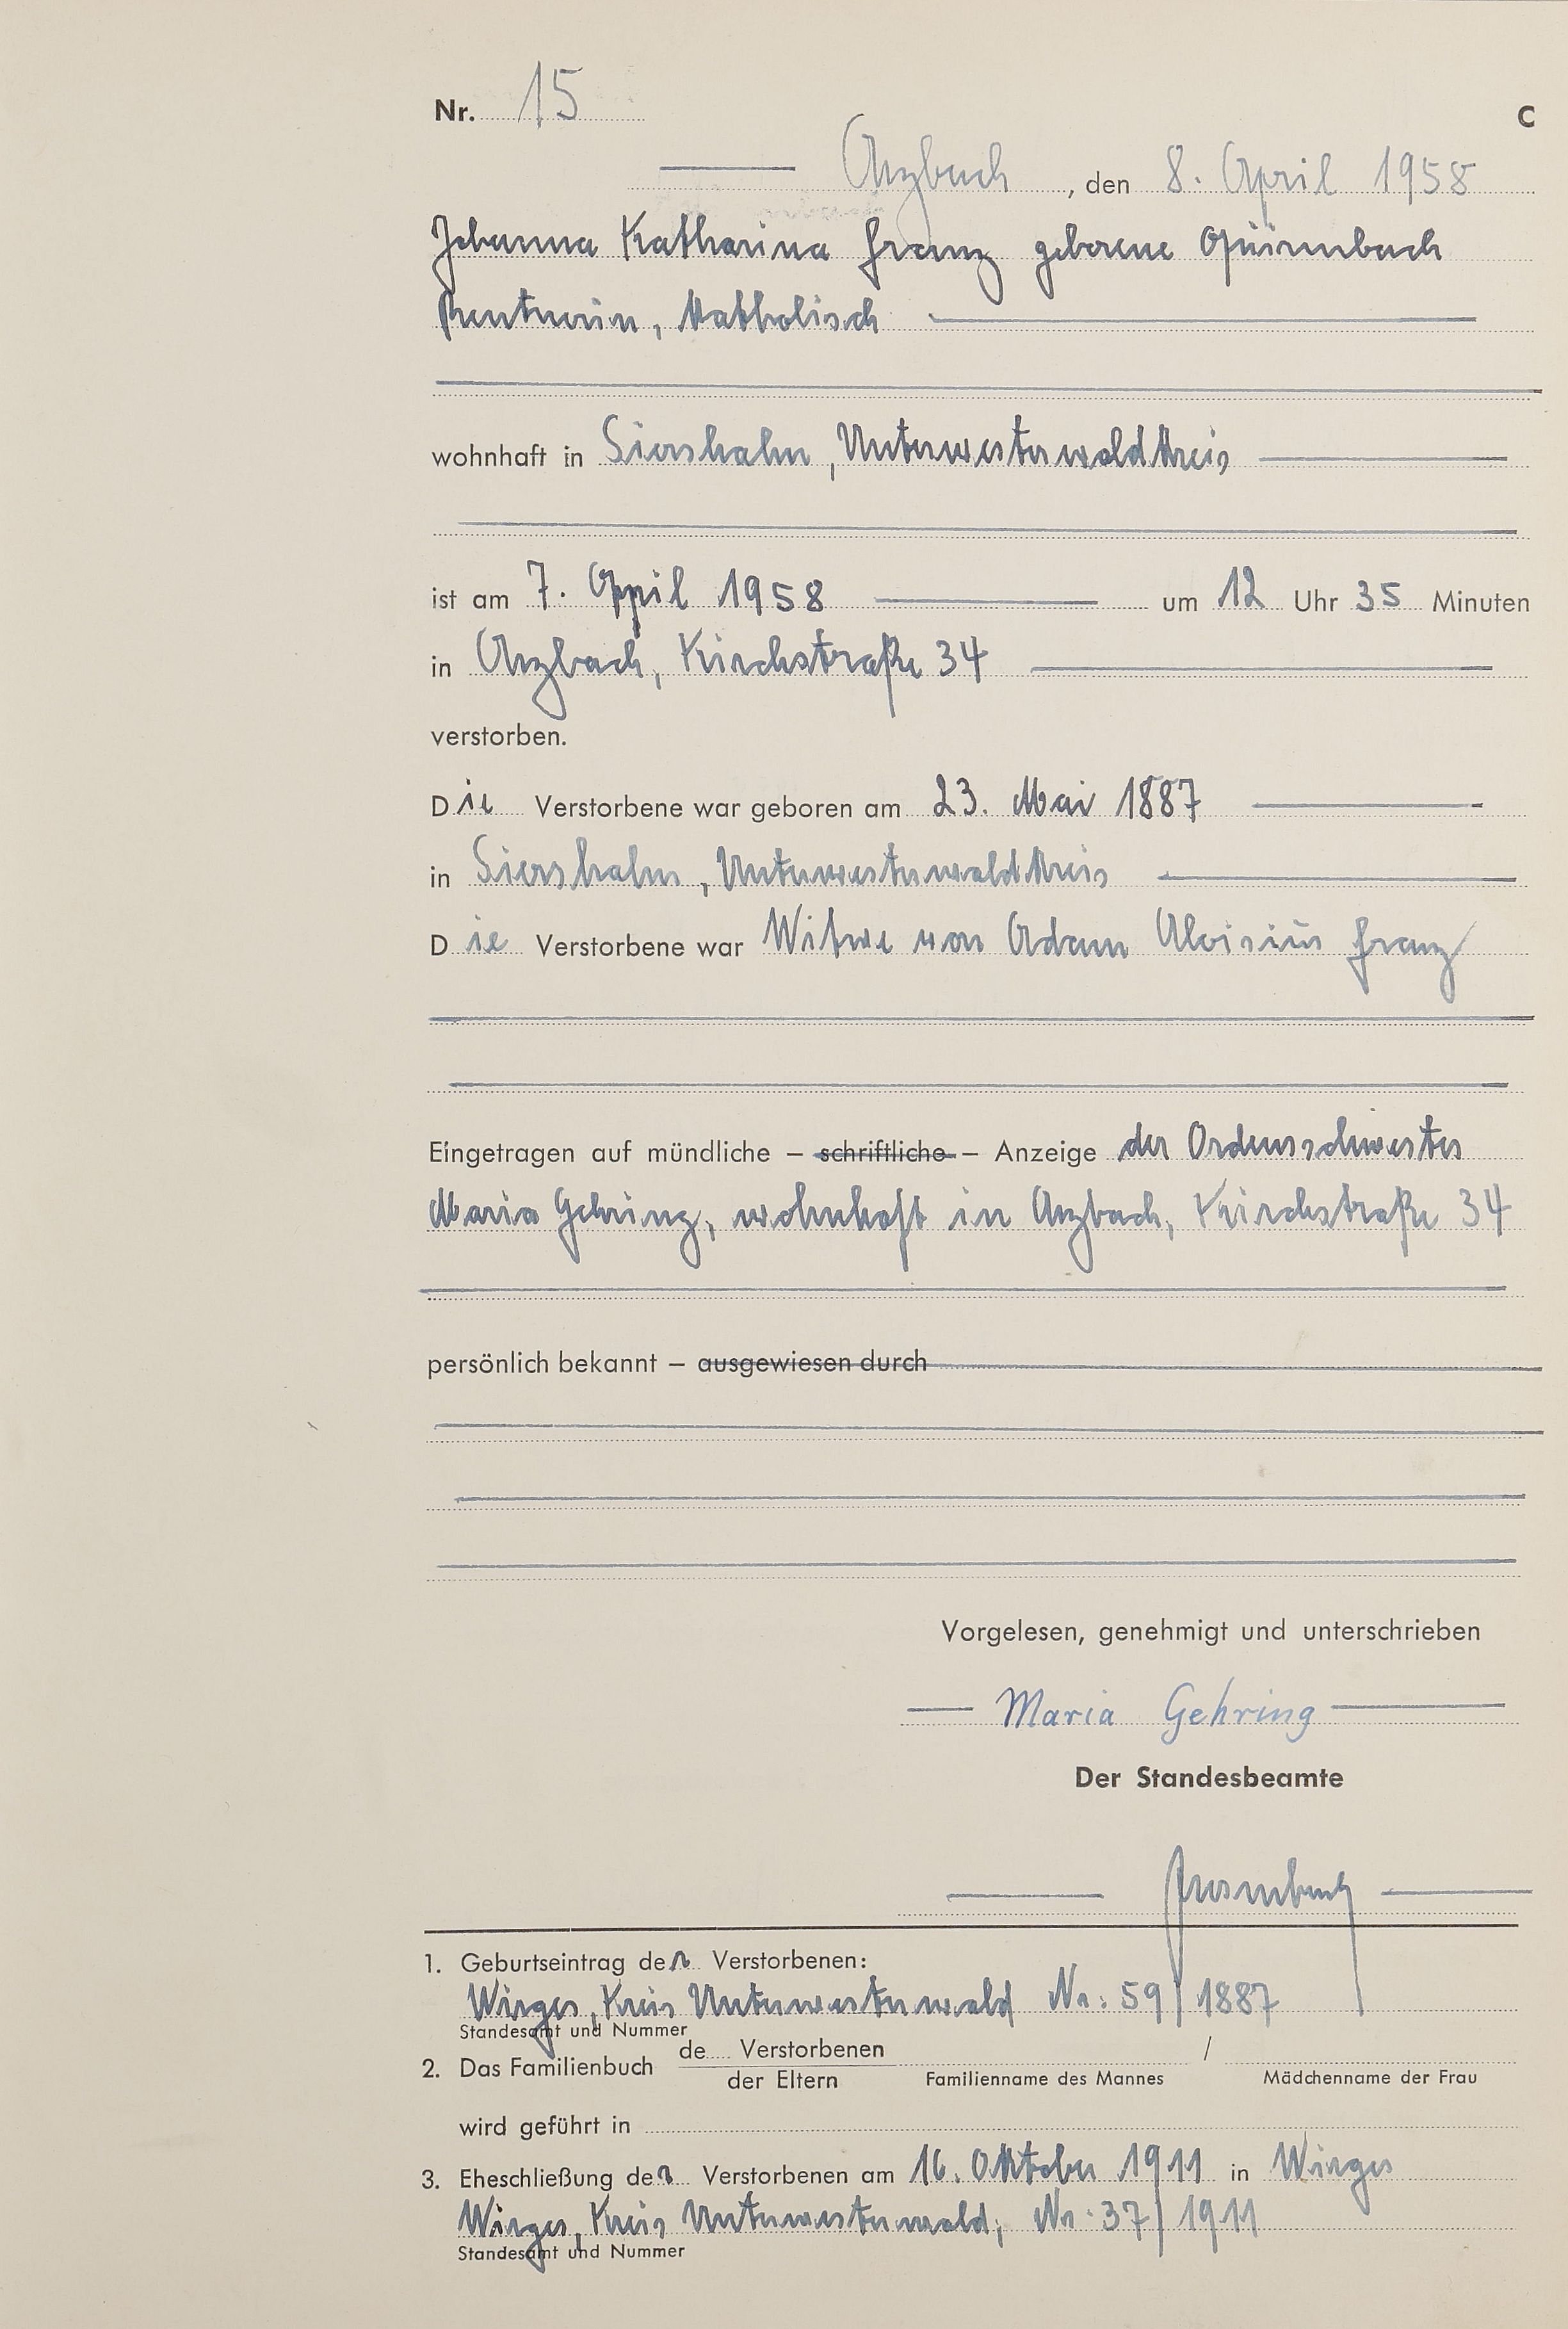 Nr. 15
C
Arzbach, den 8. April 1958
Johanna Katharina Franz geborene Quirmbach
Rentnerin, katholisch
wohnhaft in Siershahn, Unterwesterwaldkreis
ist am 7. April 1958 um 12 Uhr 35 Minuten
in Arzbach, Kirchstraße 34
verstorben.
Die Verstorbene war geboren am 23. Mai 1887
in Siershahn, Unterwesterwaldkreis
Die Verstorbene war Witwe von Adam Aloisius Franz
Eingetragen auf mündliche – schriftliche – Anzeige der Ordensschwester
Maria Gehring, wohnhaft in Arzbach, Kirchstraße 34
persönlich bekannt – ausgewiesen durch
Vorgelesen, genehmigt und unterschrieben
Maria Gehring
Der Standesbeamte
1. Geburtseintrag der Verstorbenen:
Wirges, Kreis Unterwesterwald Nr. 59/1887
Standesamt und Nummer
2. Das Familienbuch de Verstorbenen /
der Eltern Familienname des Mannes Mädchenname der Frau
wird geführt in
3. Eheschließung der Verstorbenen am 16. Oktober 1911 in Wirges
Wirges, Kreis Unterwesterwald, Nr. 37/1911
Standesamt und Nummer